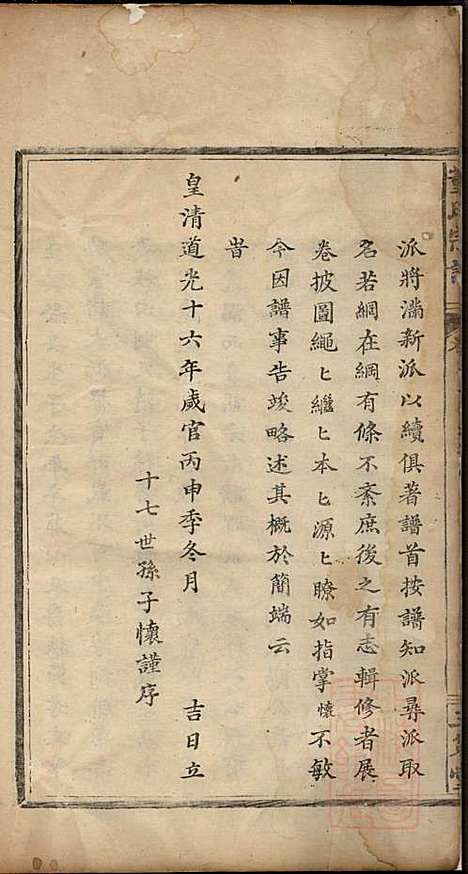 派將滿新派以續俱著譜首按譜知派尋派取
名若綱在綱有條不紊庶後之有志輯修者展
卷披圖繩匕繼匕本匕源匕瞭如指掌懷不敏
今因譜事告竣略述其概於簡端云
旹
皇清道光十六年歲官丙申季冬月 吉日立
十七世孫子懷謹序